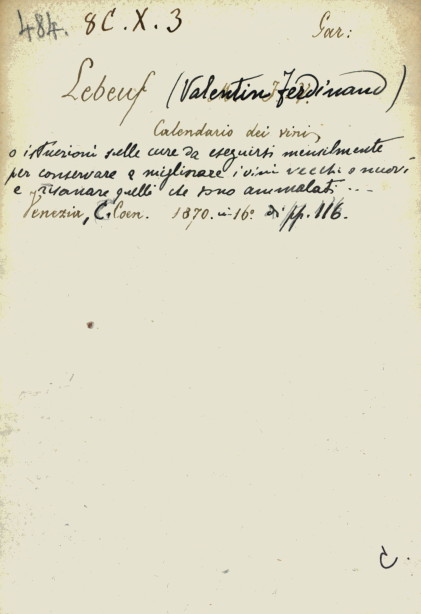 484. 8C.X.3 Gar:
Lebeuf (Valentin Ferdinand)
Calendario dei vini
o istruzioni sulle cure da eseguirsi mensilmente
per conservare e migliorare i vini vecchi e nuovi
e risanare quelli che sono ammalati ...
Venezia, C. Coen. 1870. in 16° di pp. 116.